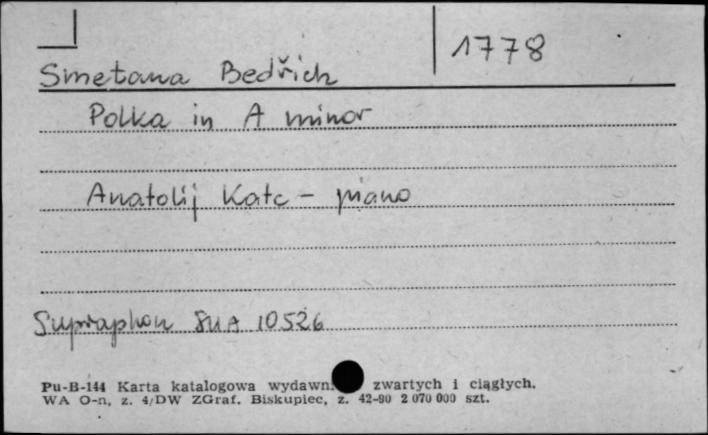 1778
Smetana Bedřich
Polka in A minor
Anatolij Katc - piano
Supraphon SUA 10526
Pu-B-144 Karta katalogowa wydawn. zwartych i ciągłych.
WA O-n, z. 4/DW ZGraf. Biskupiec, z. 42-90 2 070 000 szt.